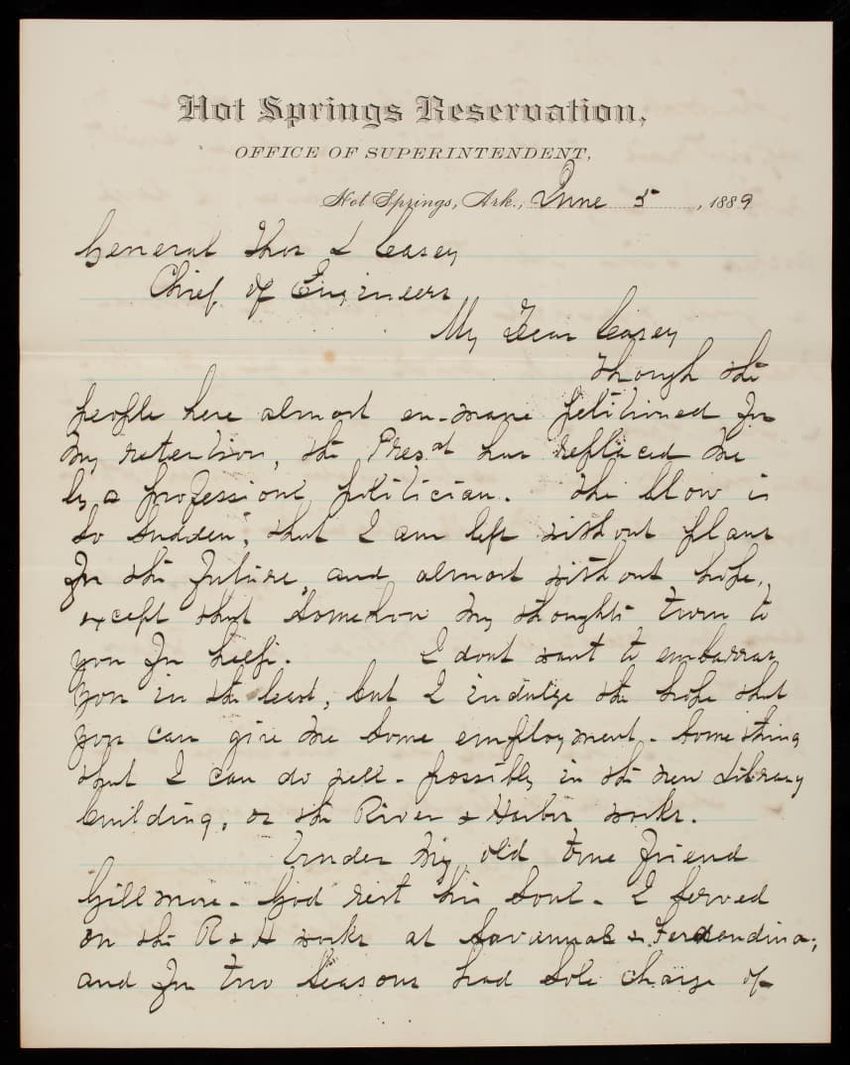 Hot Springs Reservation,
OFFICE OF SUPERINTENDENT,
Hot Springs, Ark., June 5, 1889
General Thos L Casey
Chief of Engineers
My Dear Casey
Though the
people here almost en-masse petitioned for
my retention, the Presdt has replaced me
by a professional politician. The blow is
so sudden, that I am left without plans
for the future, and almost without hope,
except that somehow my thoughts turn to
you for help. I dont want to embarrass
you in the least, but I indulge the hope that
you can give me some employment - something
that I can do well - possibly in the new Library
building, or the River & Harbor works.
Under my old true friend
Gillmore - God rest his soul - I served
on the R & H works at Savannah & Fernandina;
and for two seasons had sole charge of